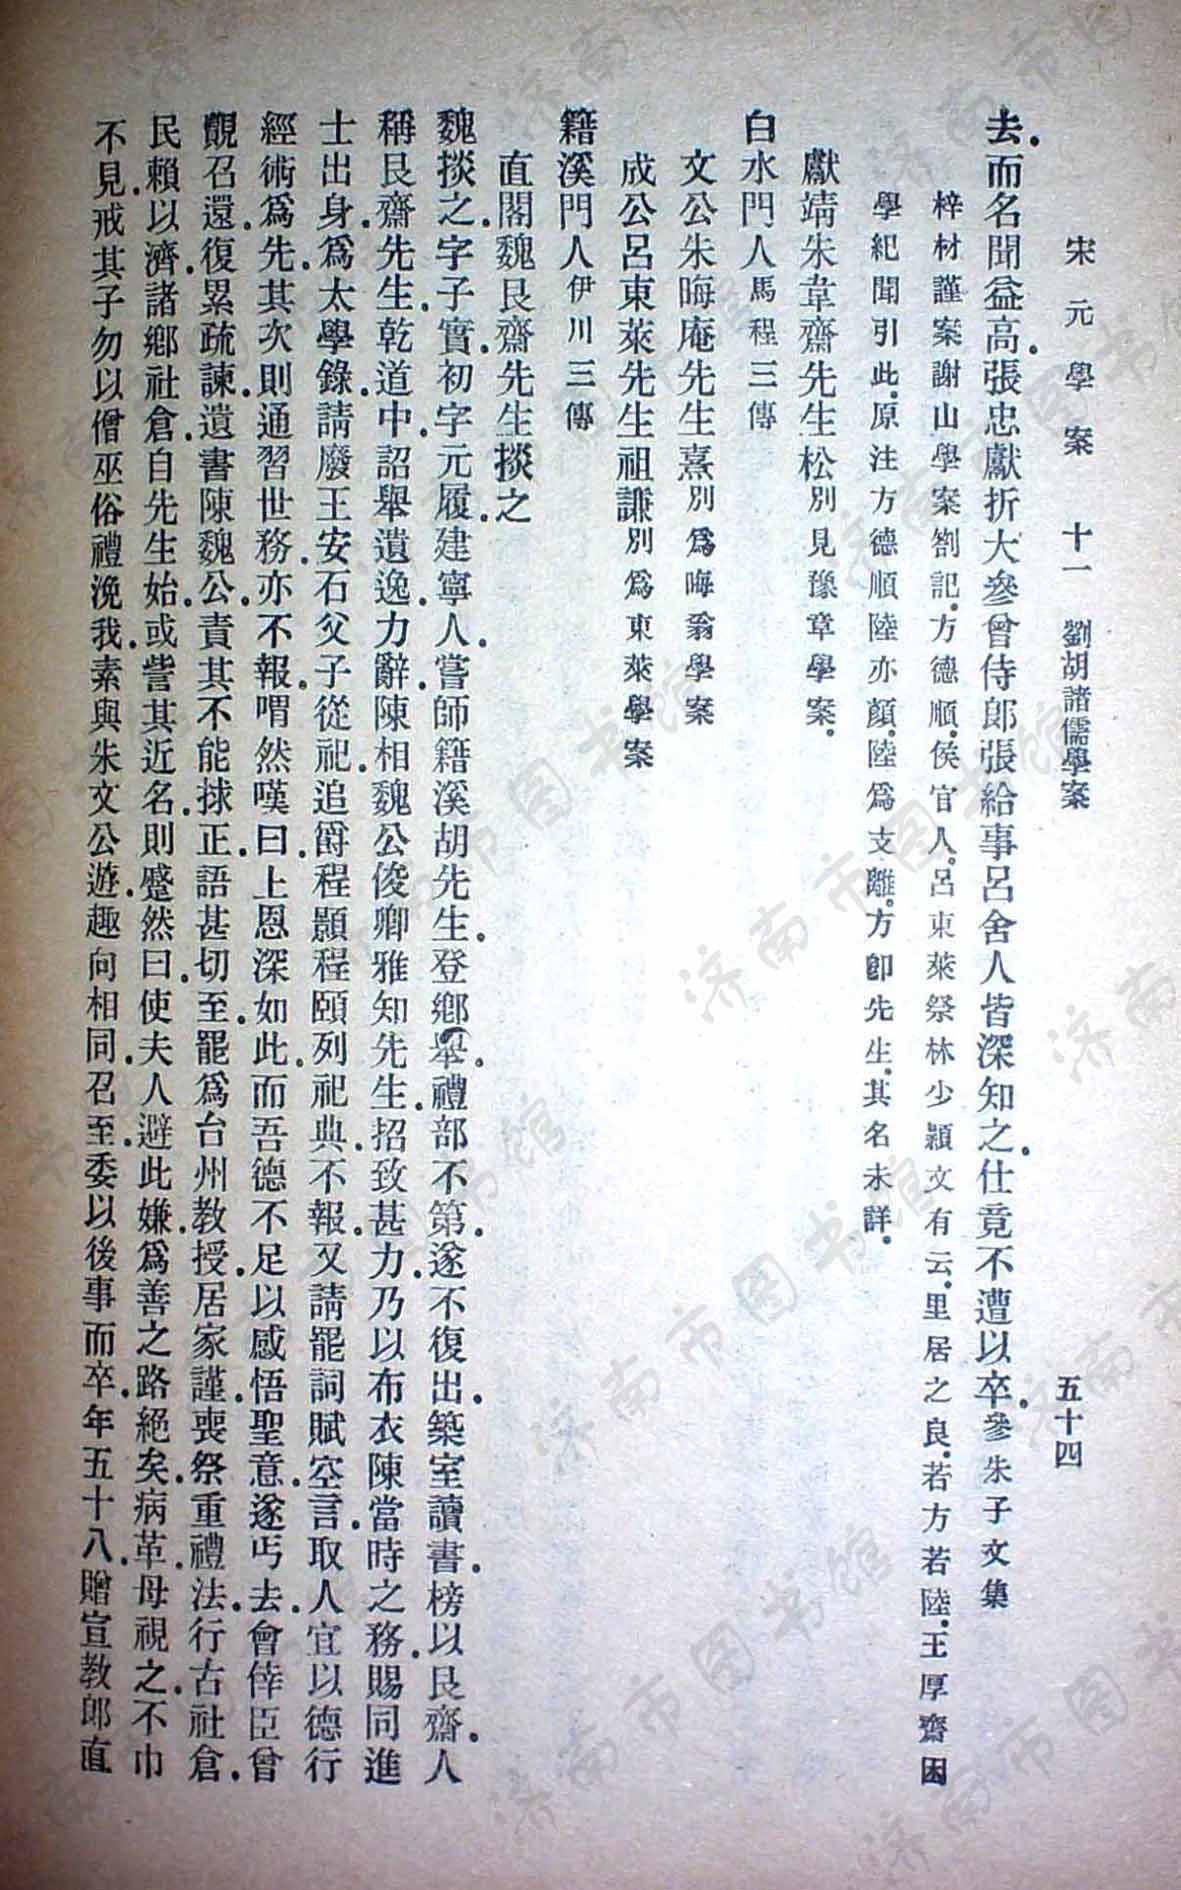 宋元學案　十一　劉胡諸儒學案　五十四
去.而名聞益高.張忠獻折大參曾侍郎張給事呂舍人皆深知之.仕竟不遭以卒.參朱子文集
梓材謹案謝山學案劄記.方德順.侯官人.呂東萊祭林少穎文有云.里居之良.若方若陸.王厚齋困
學紀聞引此.原注方德順陸亦顏.陸爲支離.方卽先生.其名未詳.
獻靖朱韋齋先生松別見豫章學案.
白水門人馬程三傳
文公朱晦庵先生熹別爲晦翁學案
成公呂東萊先生祖謙別爲東萊學案
籍溪門人伊川三傳
直閣魏艮齋先生掞之
魏掞之.字子實.初字元履.建寧人.嘗師籍溪胡先生.登鄉舉.禮部不第.遂不復出.築室讀書.榜以艮齋.人
稱艮齋先生.乾道中.詔舉遺逸.力辭.陳相魏公俊卿雅知先生.招致甚力.乃以布衣陳當時之務.賜同進
士出身.爲太學錄.請廢王安石父子從祀.追爵程顥程頤列祀典.不報.又請罷詞賦空言取人.宜以德行
經術爲先.其次則通習世務.亦不報.喟然嘆曰.上恩深如此.而吾德不足以感悟聖意.遂丐去.會倖臣曾
覿召還.復累疏諫.遺書陳魏公.責其不能捄正.語甚切至.罷爲台州教授.居家謹喪祭.重禮法.行古社倉.
民賴以濟.諸鄉社倉.自先生始.或訾其近名.則蹙然曰.使夫人避此嫌.爲善之路絕矣.病革.母視之.不巾
不見.戒其子勿以僧巫俗禮浼我.素與朱文公遊.趣向相同.召至.委以後事而卒.年五十八.贈宣教郎直